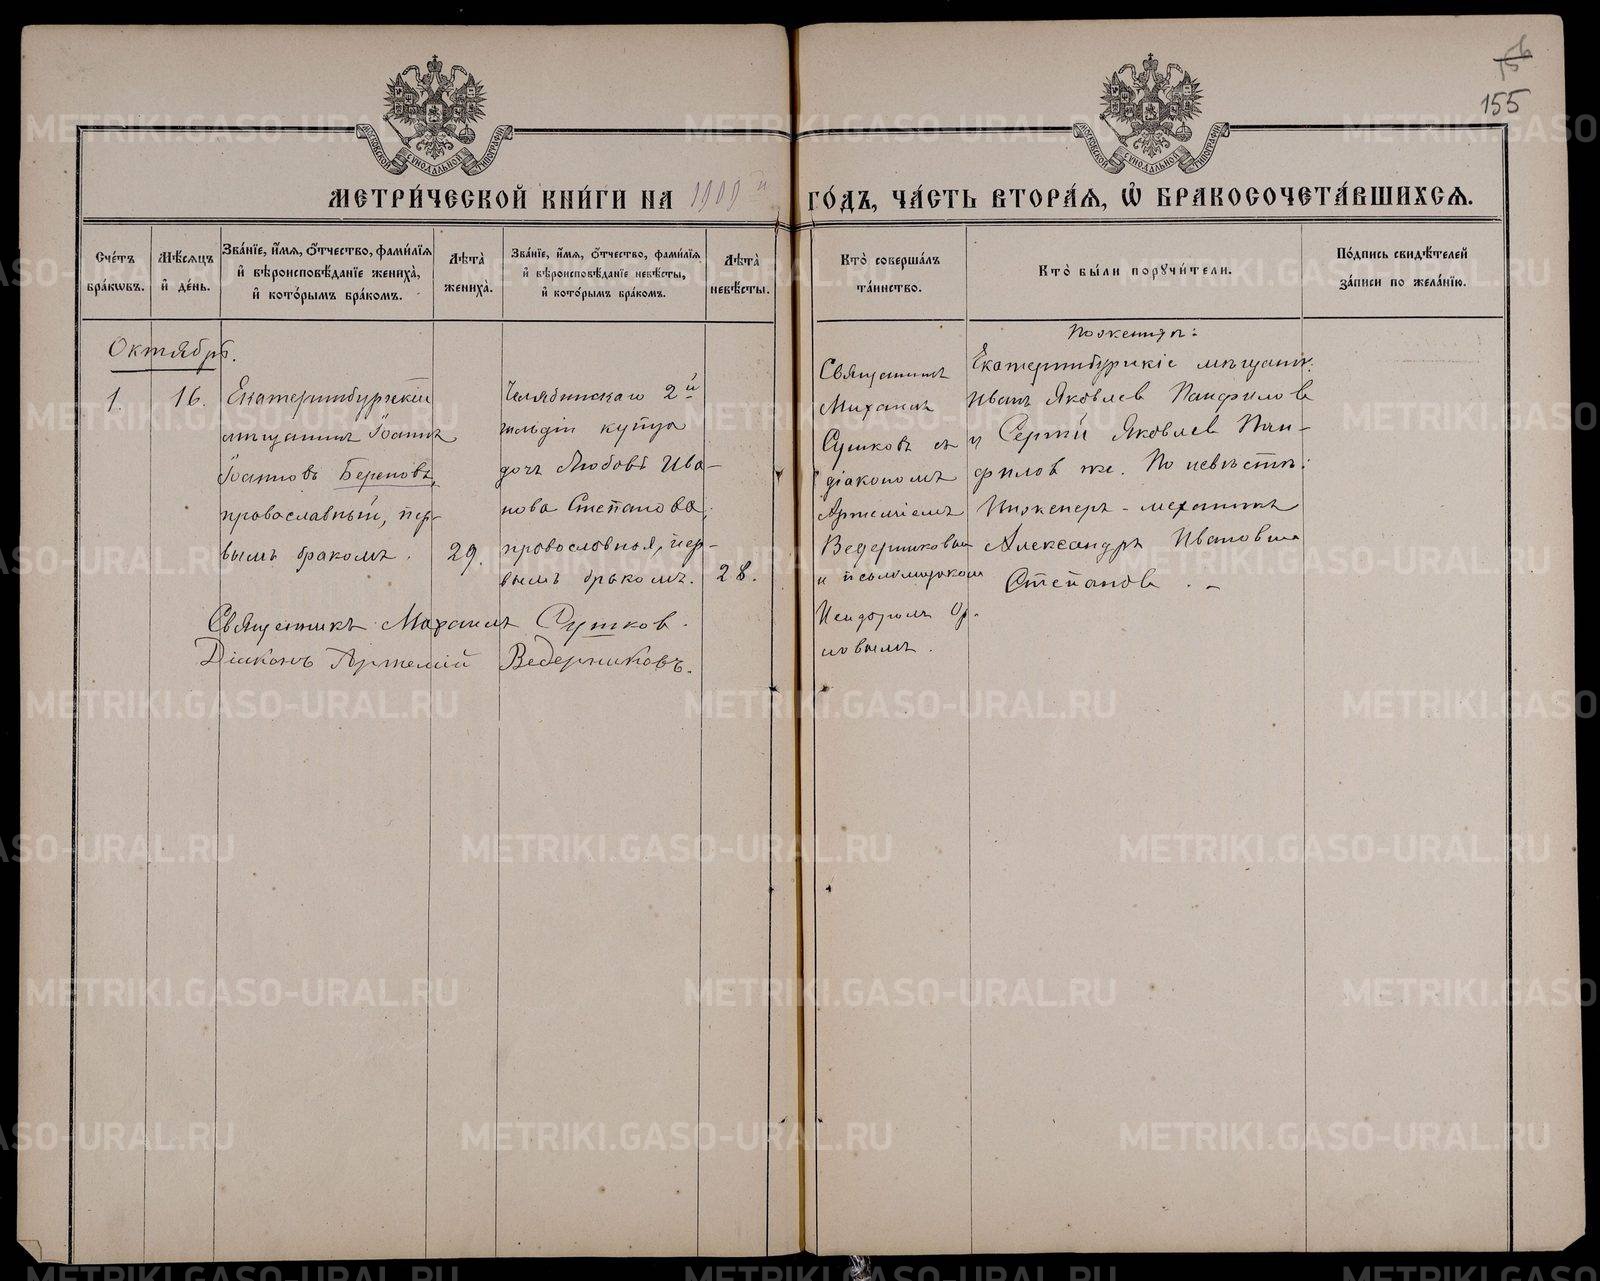 156
155
МОСКОВСКОЙ СУНОДАЛЬНОЙ ТИПОГРАФІИ
МОСКОВСКОЙ СУНОДАЛЬНОЙ ТИПОГРАФІИ
МЕТРИ́ЧЕСКОЙ КНИ́ГИ НА 1909 й ГО́ДЪ, ЧА́СТЬ ВТОРА́Я, Ѽ БРАКОСОЧЕТА́ВШИХСЯ.
Сче́тъ бра́кѡвъ.
Мѣ́сяцъ и҆ де́нь.
Зва́нїе, и҆́мя, ѻ҆́тчество, фами́лїя и҆ вѣроисповѣ́данїе жениха̀, и҆ кото́рымъ бра́комъ.
Лѣ́та жениха̀.
Зва́нїе, и҆́мя, ѻ҆́тчество, фами́лїя и҆ вѣроисповѣ́данїе невѣ́сты, и҆ кото́рымъ бра́комъ.
Лѣ́та невѣ́сты.
Кто̀ соверша́лъ та́инство.
Кто̀ бы́ли порꙋчи́тели.
По́дпись свидѣ́телей за́писи по жела́нїю.
Октябрь.
1.
16.
Екатеринбургскій
мѣщанинъ Іоаннъ
Іоанновъ
православный, пер-
вымъ бракомъ.
29.
Челябинскаго 2й
гильдіи купца
дочь Любовь Ива-
нова Степанова,
православная, пер-
вымъ бракомъ.
28.
Священникъ
Михаилъ
Сушковъ съ
діакономъ
Артеміемъ
Ведерниковым
и псаломщиком
Исидоромъ Ор-
ловымъ.
По женихѣ:
Екатеринбургскіе мѣщане:
Иванъ Яковлев Панфилов
и Сергѣй Яковлев Пан-
филов же. По невѣстѣ:
Инженеръ-механикъ
Александръ Ивановичъ
Степанов. –
Священникъ Михаилъ Сушков.
Діаконъ Артемій Ведерниковъ.
METRIKI.GASO-URAL.RU